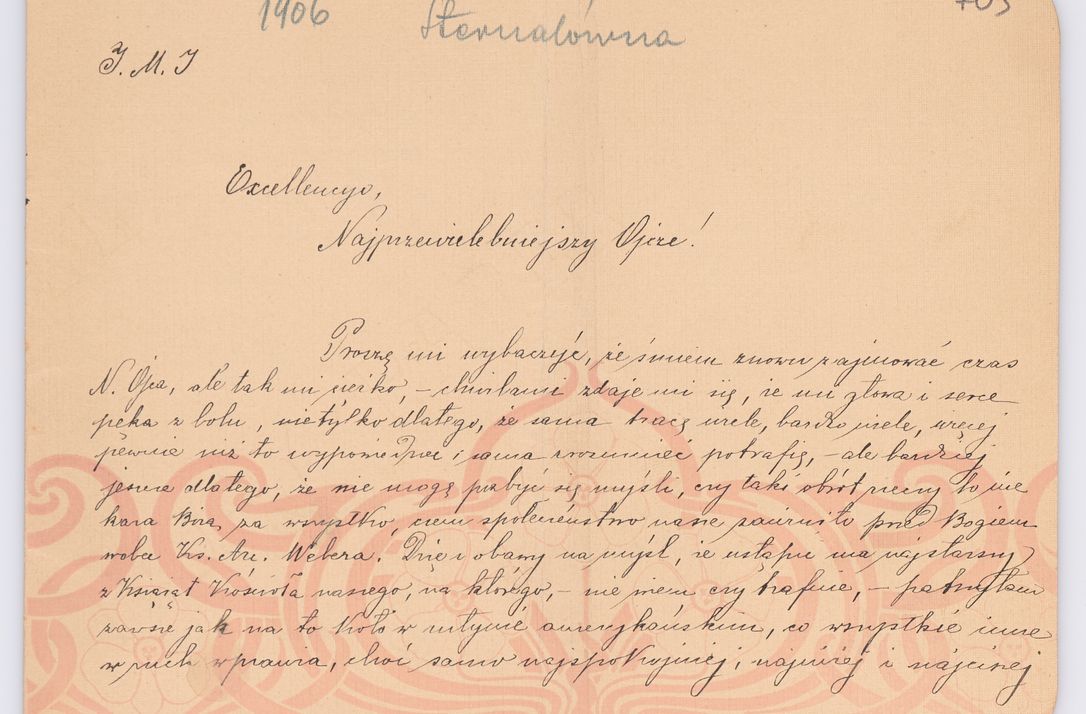 1906 Sternalówna 703
J. M. J
Excellencyo,
Najprzewielebniejszy Ojcze!
Proszę mi wybaczyć, że śmiem znowu zajmować czas
N. Ojca, ale tak mi ciężko, – chwilami zdaje mi się, że mi głowa i serce
pęka z bólu, nietylko dlatego, że sama tracę wiele, bardzo wiele, więcej
pewnie niż to wypowiedzieć i sama zrozumieć potrafię, – ale bardziej
jeszcze dlatego, że nie mogę pozbyć się myśli, czy taki obrót rzeczy to nie
kara Boża za wszystko, czem społeczeństwo nasze zawiniło przed Bogiem
wobec Ks. Arc. Webera! Drżę z obawy na myśl, że ustąpić ma najstarszy
z Książąt Kościoła naszego, na którego, – nie wiem czy trafnie, – patrzyłam
zawsze jak na to koło w młynie amerykańskim, co wszystkie inne
w ruch wprawia, choć samo najspokojniej, najciszej i najciężej